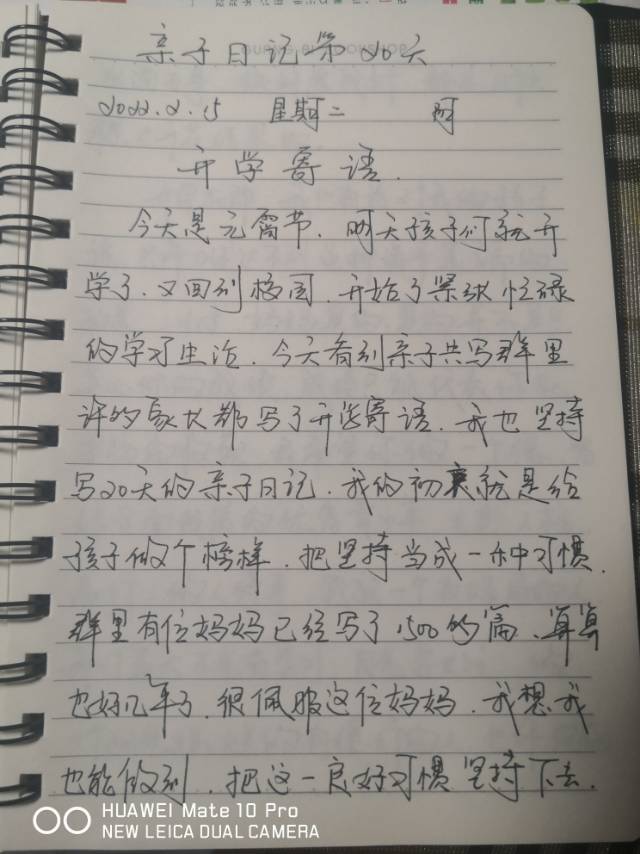 亲子日记第20天
2022.2.15 星期二 阴
开学寄语.
今天是元宵节.明天孩子们就开
学了.又回到校园.开始了紧张忙碌
的学习生活.今天看到亲子共写群里
许的家长都写了开学寄语.我也坚持
写20天的亲子日记.我的初衷就是给
孩子做个榜样.把坚持当成一种习惯.
群里有位妈妈已经写了1500的篇、算算
也好几年了.很佩服这位妈妈.我想我
也能做到.把这一良好习惯坚持下去.
HUAWEI Mate 10 Pro
NEW LEICA DUAL CAMERA